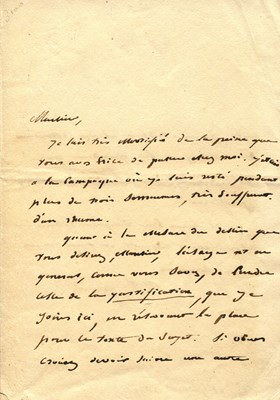 Monsieur,
Je suis très mortifié de la peine que
vous avez prise de passer chez moi. J'étais
à la Campagne où je suis resté pendant
plus de trois semaines, très souffrant
d'un rhume.
Quant à la mesure du dessin que
vous désirez Monsieur, l'usage est en
général, comme vous savez, de prendre
celle de la justification, que je
joins ici, en réservant la place
pour le texte du sujet. Si vous
croyez devoir suivre une autre